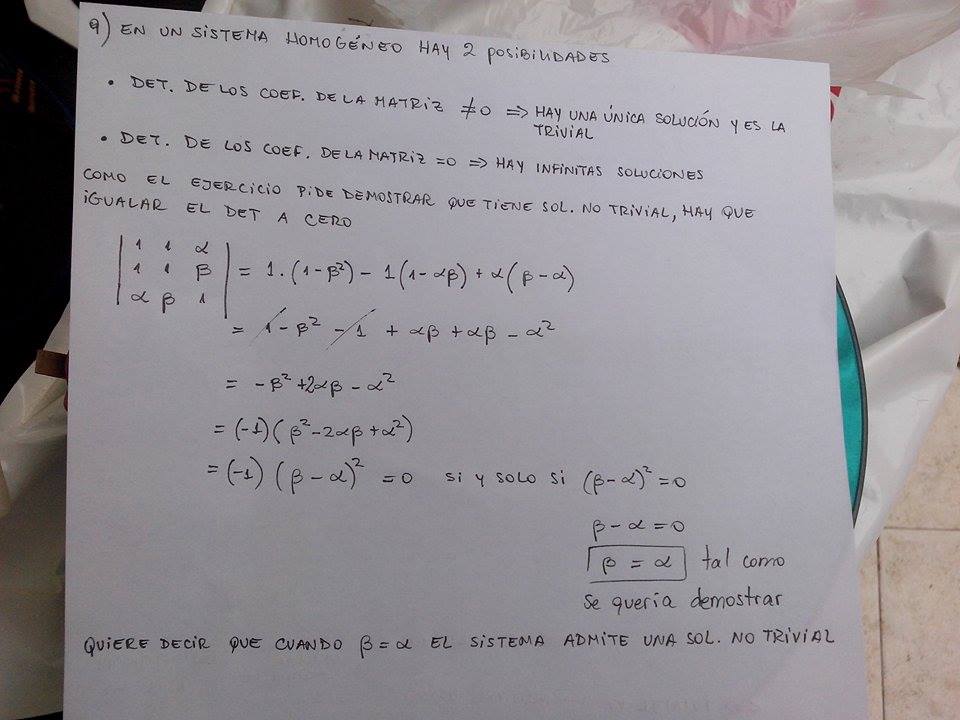 9) EN UN SISTEMA HOMOGÉNEO HAY 2 POSIBILIDADES
• DET. DE LOS COEF. DE LA MATRIZ ≠0 ⇒ HAY UNA ÚNICA SOLUCIÓN Y ES LA
TRIVIAL
• DET. DE LOS COEF. DE LA MATRIZ =0 ⇒ HAY INFINITAS SOLUCIONES
COMO EL EJERCICIO PIDE DEMOSTRAR QUE TIENE SOL. NO TRIVIAL, HAY QUE
IGUALAR EL DET A CERO
| 1 1 α |
| 1 1 β | = 1·(1-β²) - 1(1-αβ) + α(β-α)
| α β 1 |
= 1-β² -1 + αβ + αβ - α²
= -β² + 2αβ - α²
= (-1)(β²-2αβ+α²)
= (-1) (β-α)² = 0 si y solo si (β-α)² = 0
β-α = 0
β = α tal como
se quería demostrar
QUIERE DECIR QUE CUANDO β=α EL SISTEMA ADMITE UNA SOL. NO TRIVIAL